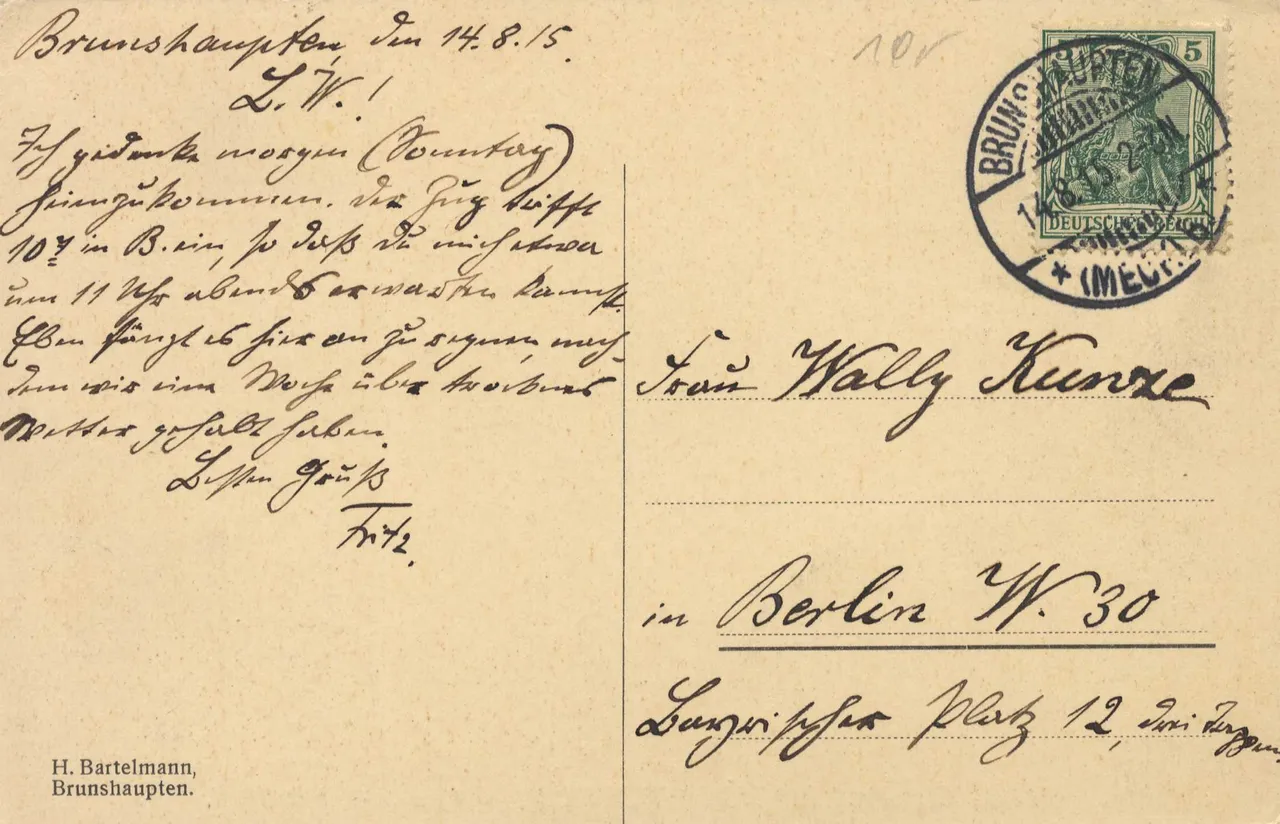 Brunshaupten, den 14.8.15.
L. W.!
Ich gedenke morgen (Sonntag)
heimzukommen. Der Zug trifft
10 in B. ein, so daß du mich etwa
um 11 Uhr abends erwarten kannst.
Eben fängt es hier an zu regnen, nach
dem wir eine Woche über trocknes
Wetter gehalt haben.
Besten Gruß
Fritz.
H. Bartelmann,
Brunshaupten.
10
5 5
DEUTSCHES REICH
BRUNSHAUPTEN
14.8.15. 2-3N
* (MECK.) *
Frau Wally Kunze
in Berlin W. 30
Bayrischer Platz 12, drei Treppen